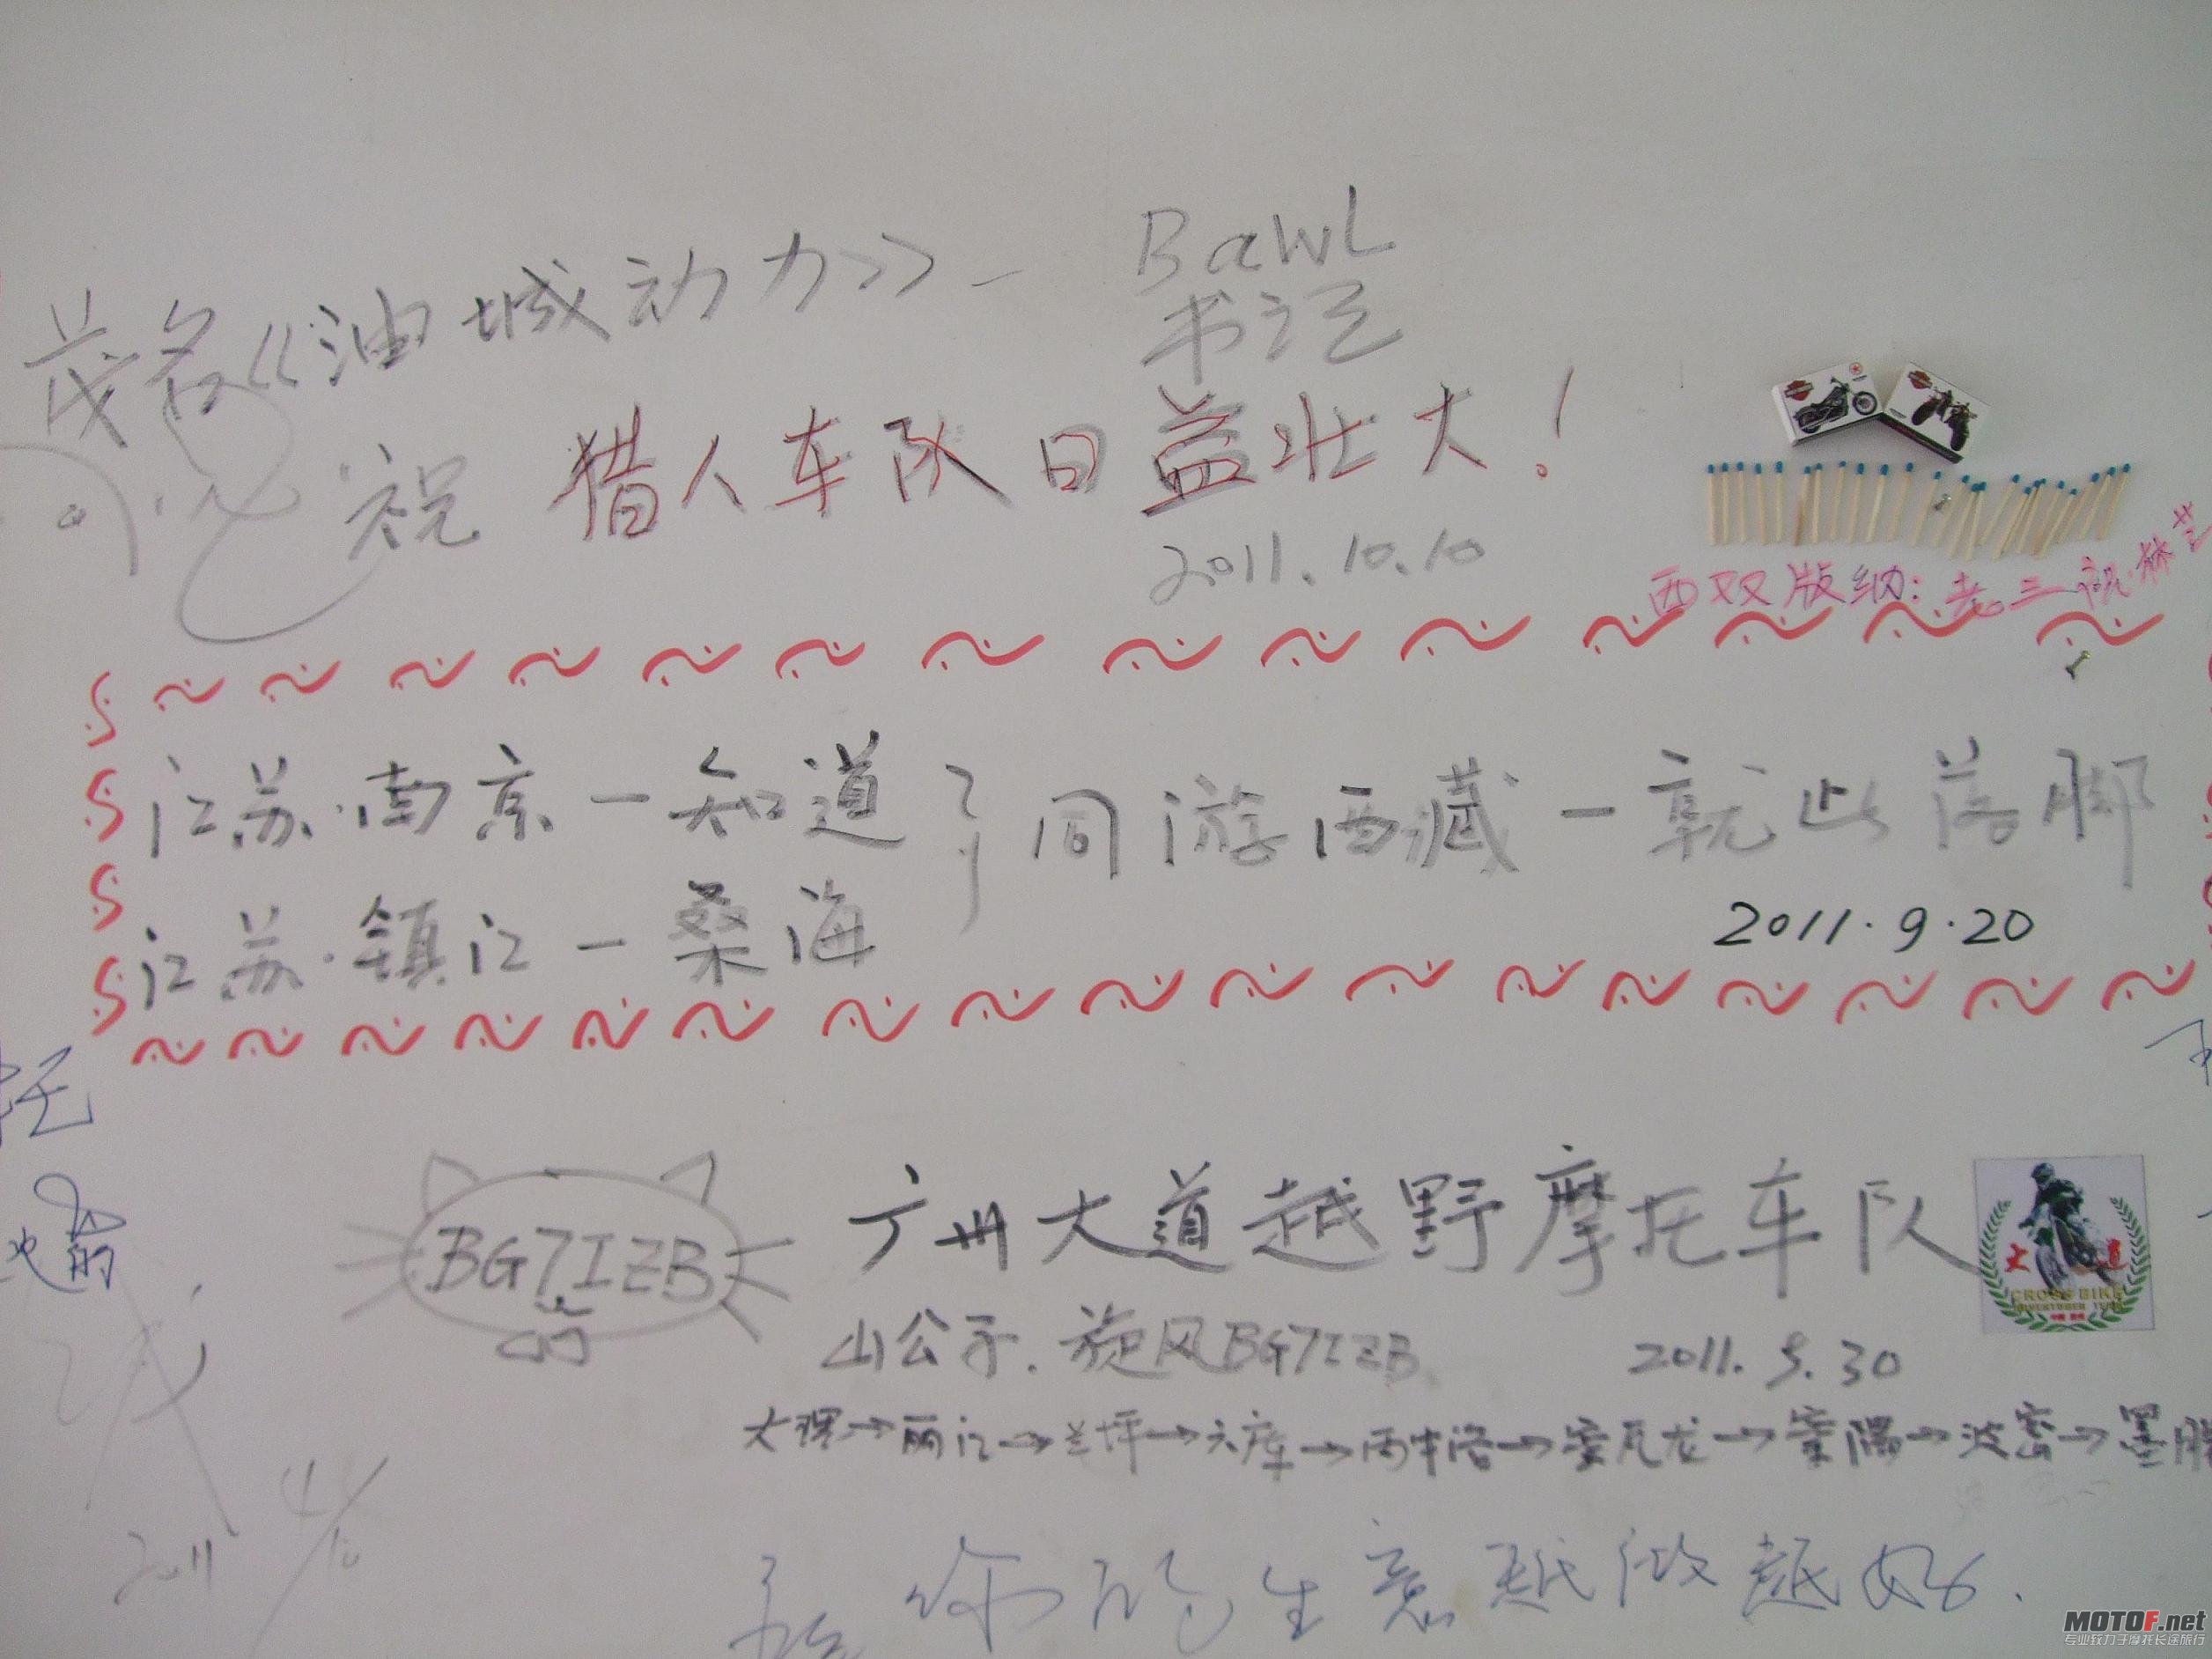 BawL
茂名《油城动力》- 书记
祝 猎人车队日益壮大！
2011.10.10
西双版纳：老三祝.林芝
江苏.南京一知道了同游西藏一就此落脚
江苏.镇江一桑海
2011.9.20
托
BG7IZB
广州大道越野摩托车队
大道
CROSS BIKE
山公子.旋风BG7IZB 2011.9.30
大理→丽江→兰坪→六库→丙中洛→察瓦龙→察隅→波密→墨脱
2011 4/10
你的生意越做越好.
MOTOF.net
专业致力于摩托长途旅行